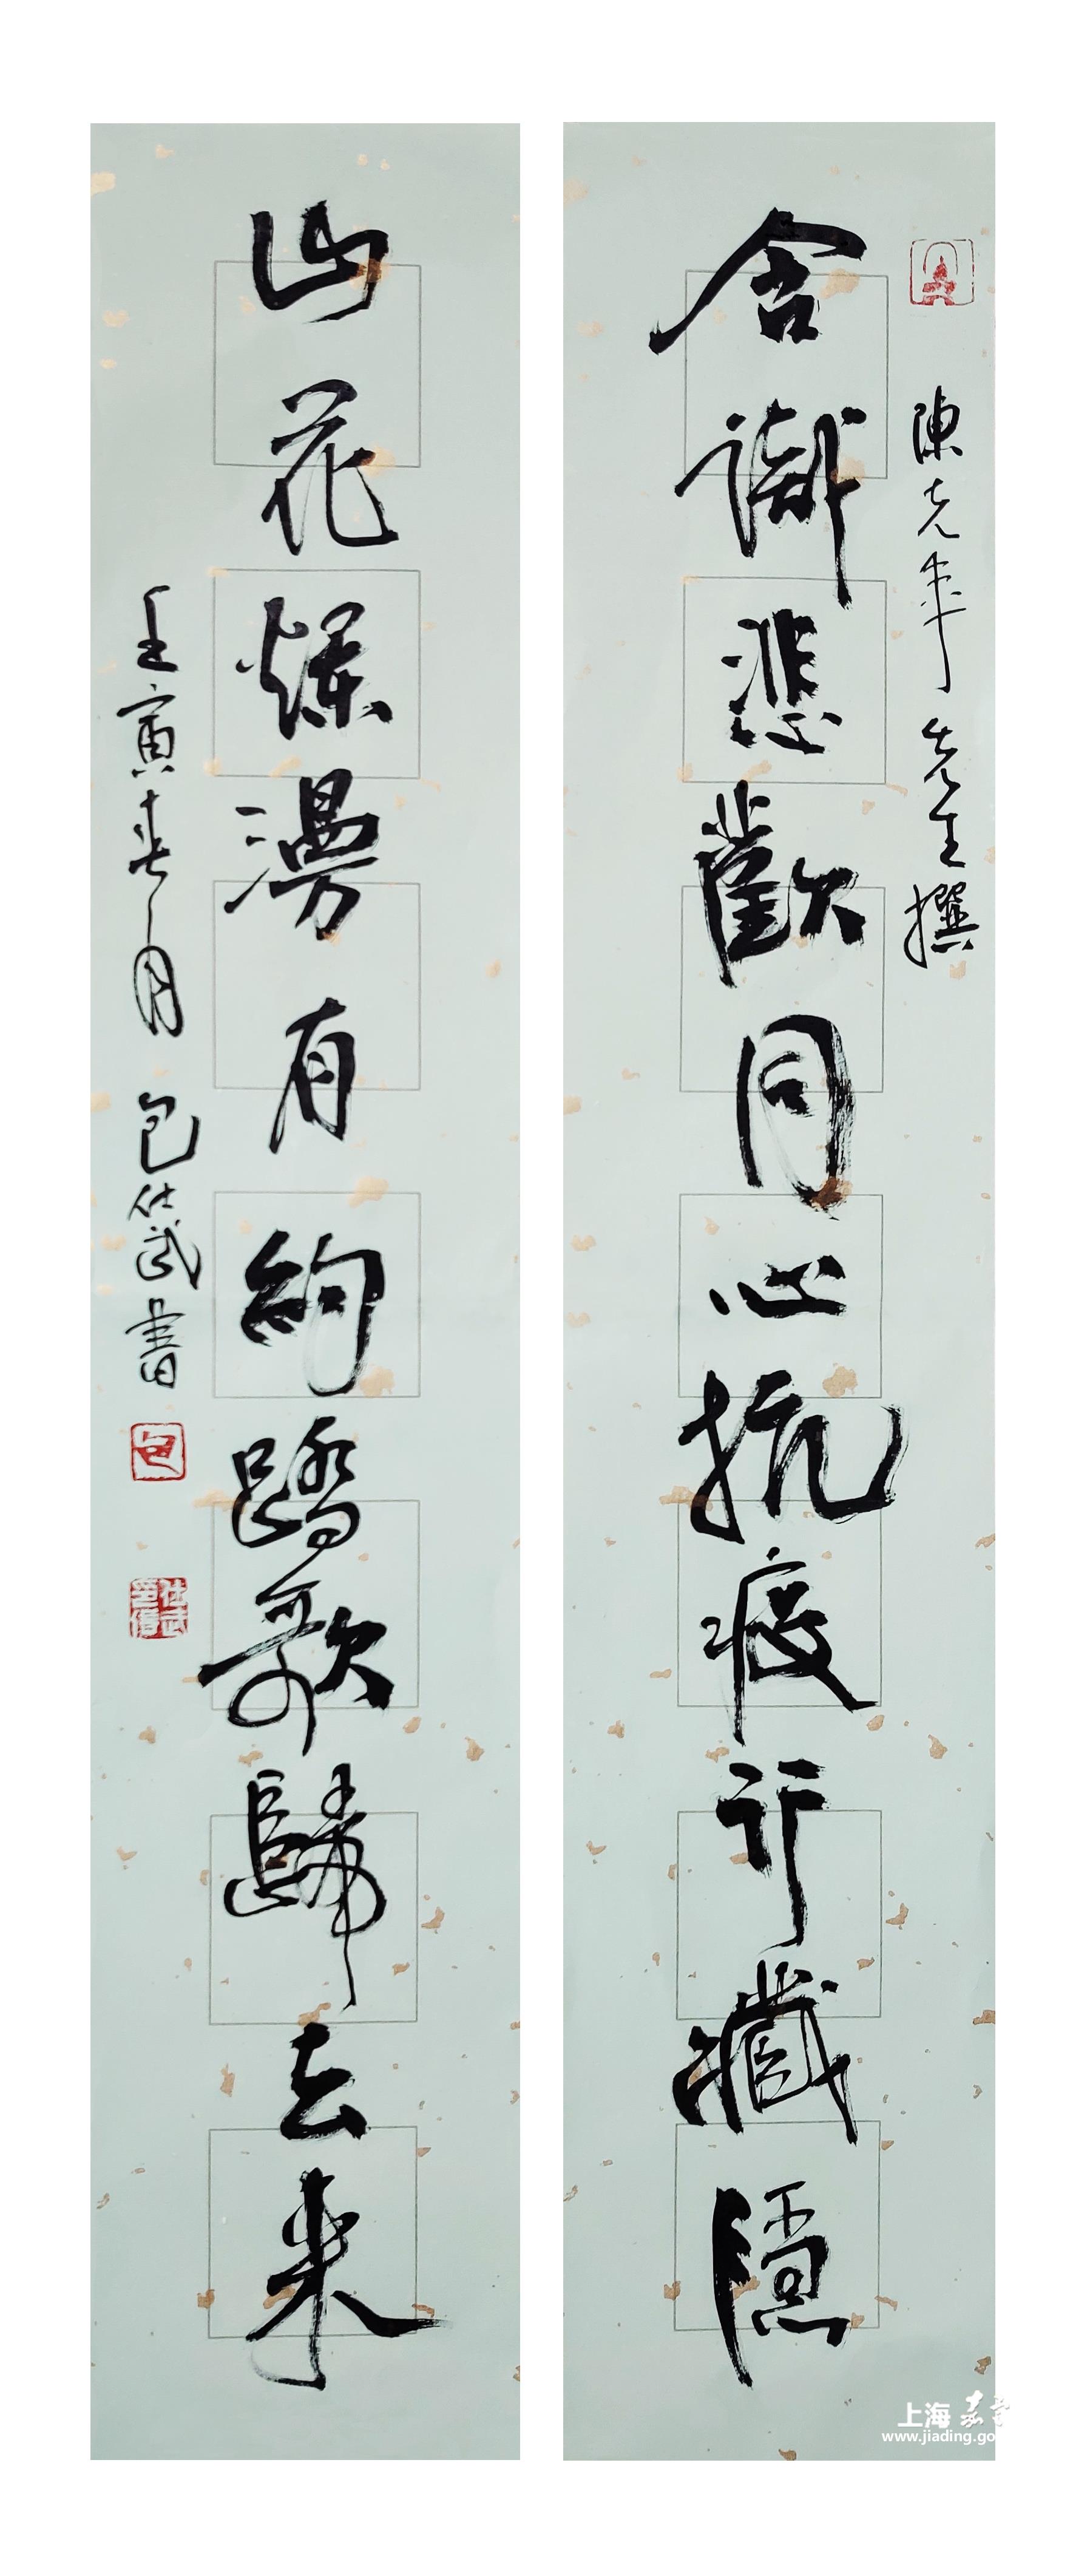 陳
先生撰
舍悲歡同心抗疫行藏隱
山花爛漫有約踏歌歸去來
壬寅春月 包仕武書
包
仕武印信
上海嘉定
www.jiading.go